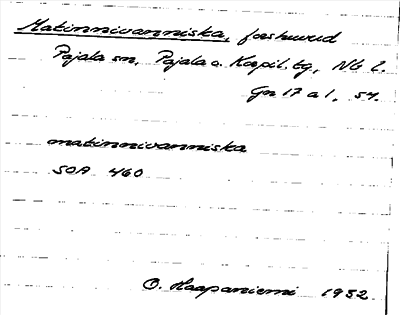 Matinnivanniska, forshuvud
Pajala sn, Pajala o. Korpil. tg, Nb l.
Gn 17 a 1, 54.
matinnivanniska
SOA 460
O. Haapaniemi 1932